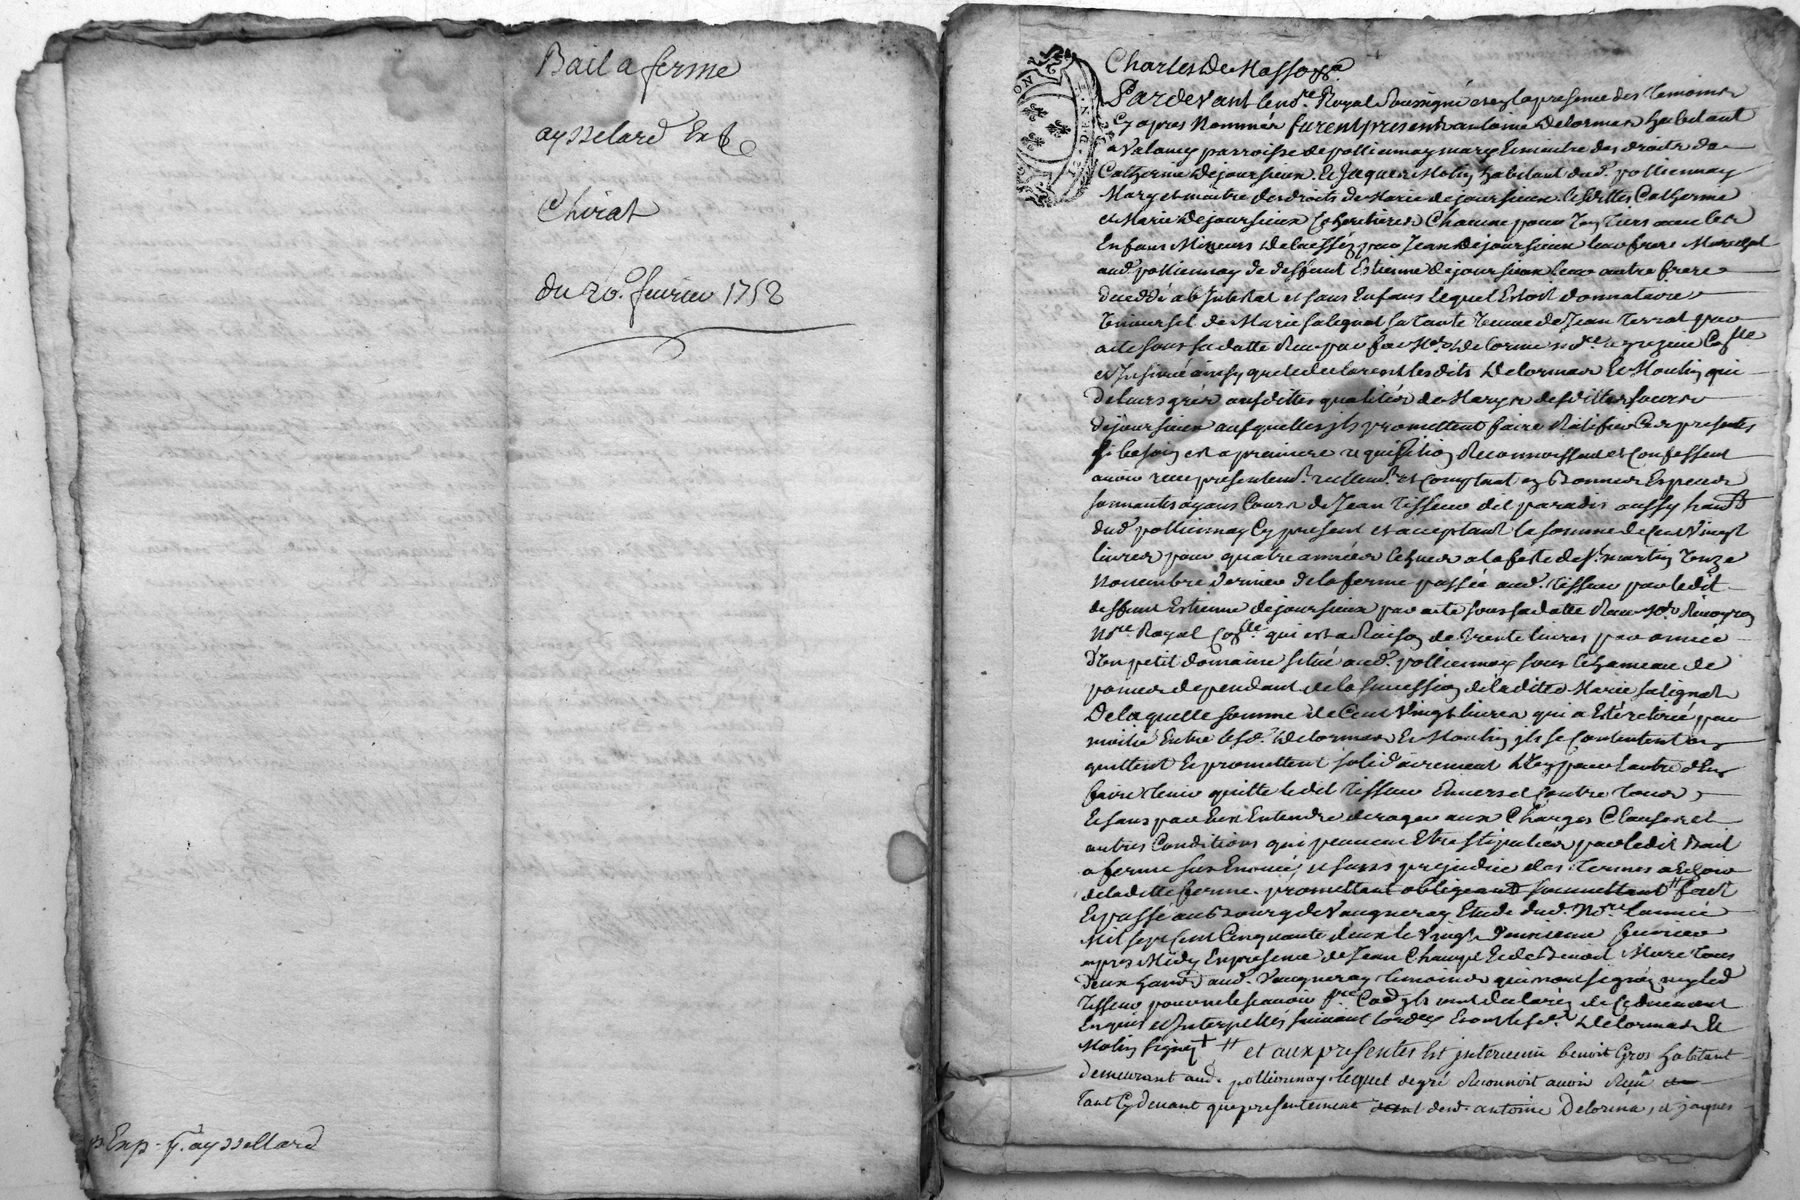 Bail a ferme
aysselard Et
Chirat
du 20. feurier 1752
p Exp. f. ayssellard
Charles De Masso
Pardevant le no.re Royal soussigné et en la presence des temoins
Cy apres Nommés furent presents antoine Delorme habitant
a Valancy parroisse de polliennay mary et maitre des droits de
Catherine Dejoursieux et Jaques Molin habitant dud. polliennay
Mary et maitre des droits de Marie dejoursieux lesdittes Catherine
et Marie Dejoursieux Coheritieres Chacune pour un tiers avec les
Enfans Mineurs delaissés par Jean Dejoursieux leur frere Marechal
aud. polliennay de deffunt Estienne dejoursieux leur autre frere
decedé ab intestat et sans Enfans lequel Estoit donnataire
de Marie salignat sa tante veuve de Jean Terrat par
acte sous sa datte Receu par Me Delorme no.re
et insinué ainsy que le declarent lesdits Delorme et Moulin qui
de leurs grés ausdittes qualités de Marys desdittes soeurs
dejoursieux ausquelles ils promettent faire Ratifier Ces presentes
si besoin est a premiere requisition Reconnoissent et Confessent
avoir receu presentem.t reellem.t et Comptant en Bonnes Especes
sonnantes ayans Cours de Jean Tisseur dit paradis aussy hant
dud. polliennay Cy present et acceptant la somme de Cent Vingt
livres pour quatre années Echues a la feste de St. martin onze
Novembre dernier de la ferme passée aud. Tisseur par ledit
deffunt Estienne dejoursieux par acte sous sa datte Receu Me
No.re Royal qui est a Raison de trente livres par année
d'un petit domaine situé aud. polliennay sous le hameau de
pomes dependant de la succession de laditte Marie salignat
De laquelle somme de Cent Vingt livres qui a Esté retirée par
moitié Entre lesd. Delorme et Moulin ils se Contentent en
quittent et promettent solidairement l'un pour l'autre d'En
faire tenir quitte ledit Tisseur Envers et Contre tous
Et sans par Eux Entendre deroger aux Charges Clauses et
autres Conditions qui peuvent Etre stipulées par ledit Bail
a ferme sus Enoncé, et sans prejudice des termes a Echoir
de laditte ferme. promettant obligeant soumettant †† fait
Et passé au Bourg de Vaugneray Etude dud. No.re l'année
Mil sept Cent Cinquante deux le Vingt feurier
apres Midy En presence de Jean Champt et de Benoit Mure tous
deux hants aud. Vaugneray temoins qui n'ont signé ny led
Tisseur pour ne le scavoir ils ont declaré de Ce duement
Enquis et Interpellés suivant l'ordce Et ont lesd. Delorme et
Molin signé † †† et aux presentes Est intervenu benoit Gros habitant
demeurant aud. polliennay lequel de gré Reconnoit avoir Receu
tant Cy devant que presentement desd. antoine Delorme, et jaques